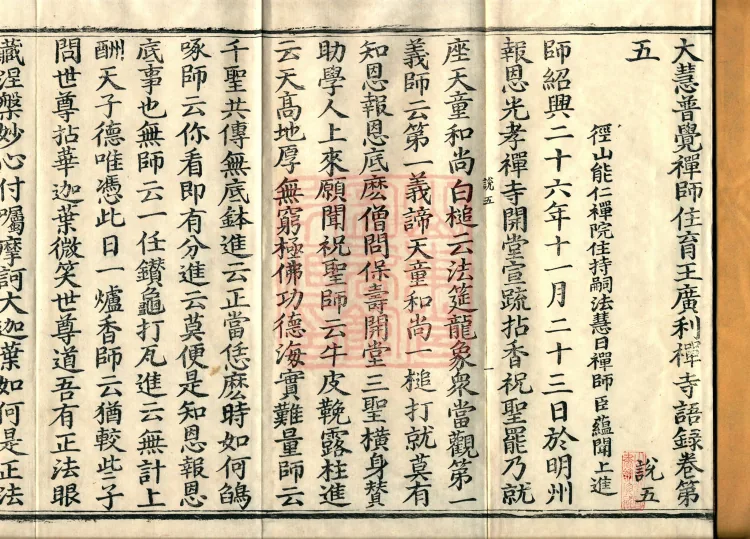 大慧普覺禪師住育王廣利禪寺語錄卷第
五
說五
徑山能仁禪院住持嗣法慧日禪師臣蘊聞上進
師紹興二十六年十一月二十三日於明州
報恩光孝禪寺開堂宣疏拈香祝聖罷乃就
說五
一
座天童和尚白槌云法筵龍象衆當觀第一
義師云第一義諦天童和尚一槌打就莫有
知恩報恩底麽僧問保壽開堂三聖橫身賛
助學人上來願聞祝聖師云牛皮鞔露柱進
云天高地厚無窮極佛功德海實難量師云
千聖共傳無底鉢進云正當恁麽時如何鴿
啄師云你看即有分進云莫便是知恩報恩
底事也無師云一任鑚龜打瓦進云無計上
酬天子德唯憑此日一爐香師云猶較些子
問世尊拈華迦葉微笑世尊道吾有正法眼
藏涅槃妙心付囑摩訶大迦葉如何是正法